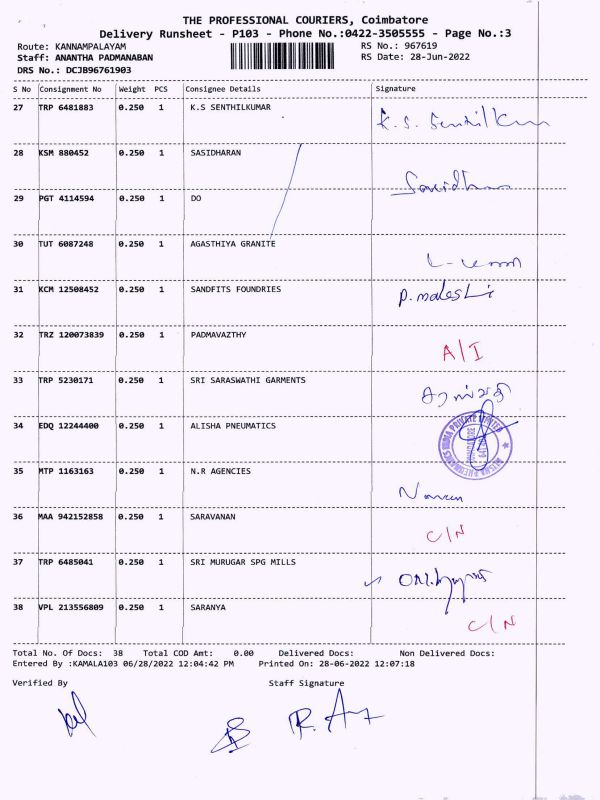 THE PROFESSIONAL COURIERS, Coimbatore
Delivery Runsheet - P103 - Phone No.:0422-3505555 - Page No.:3
Route: KANNAMPALAYAM RS No.: 967619
Staff: ANANTHA PADMANABAN RS Date: 28-Jun-2022
DRS No.: DCJB96761903
S No Consignment No Weight PCS Consignee Details Signature
27 TRP 6481883 0.250 1 K.S SENTHILKUMAR K. S. Senthilkum
28 KSM 880452 0.250 1 SASIDHARAN
29 PGT 4114594 0.250 1 DO
30 TUT 6087248 0.250 1 AGASTHIYA GRANITE
31 KCM 12508452 0.250 1 SANDFITS FOUNDRIES
32 TRZ 120073839 0.250 1 PADMAVAZTHY A/I
33 TRP 5230171 0.250 1 SRI SARASWATHI GARMENTS
34 EDQ 12244400 0.250 1 ALISHA PNEUMATICS
35 MTP 1163163 0.250 1 N.R AGENCIES
36 MAA 942152858 0.250 1 SARAVANAN C/N
37 TRP 6485041 0.250 1 SRI MURUGAR SPG MILLS
38 VPL 213556809 0.250 1 SARANYA C/N
Total No. Of Docs: 38 Total COD Amt: 0.00 Delivered Docs: Non Delivered Docs:
Entered By :KAMALA103 06/28/2022 12:04:42 PM Printed On: 28-06-2022 12:07:18
Verified By Staff Signature